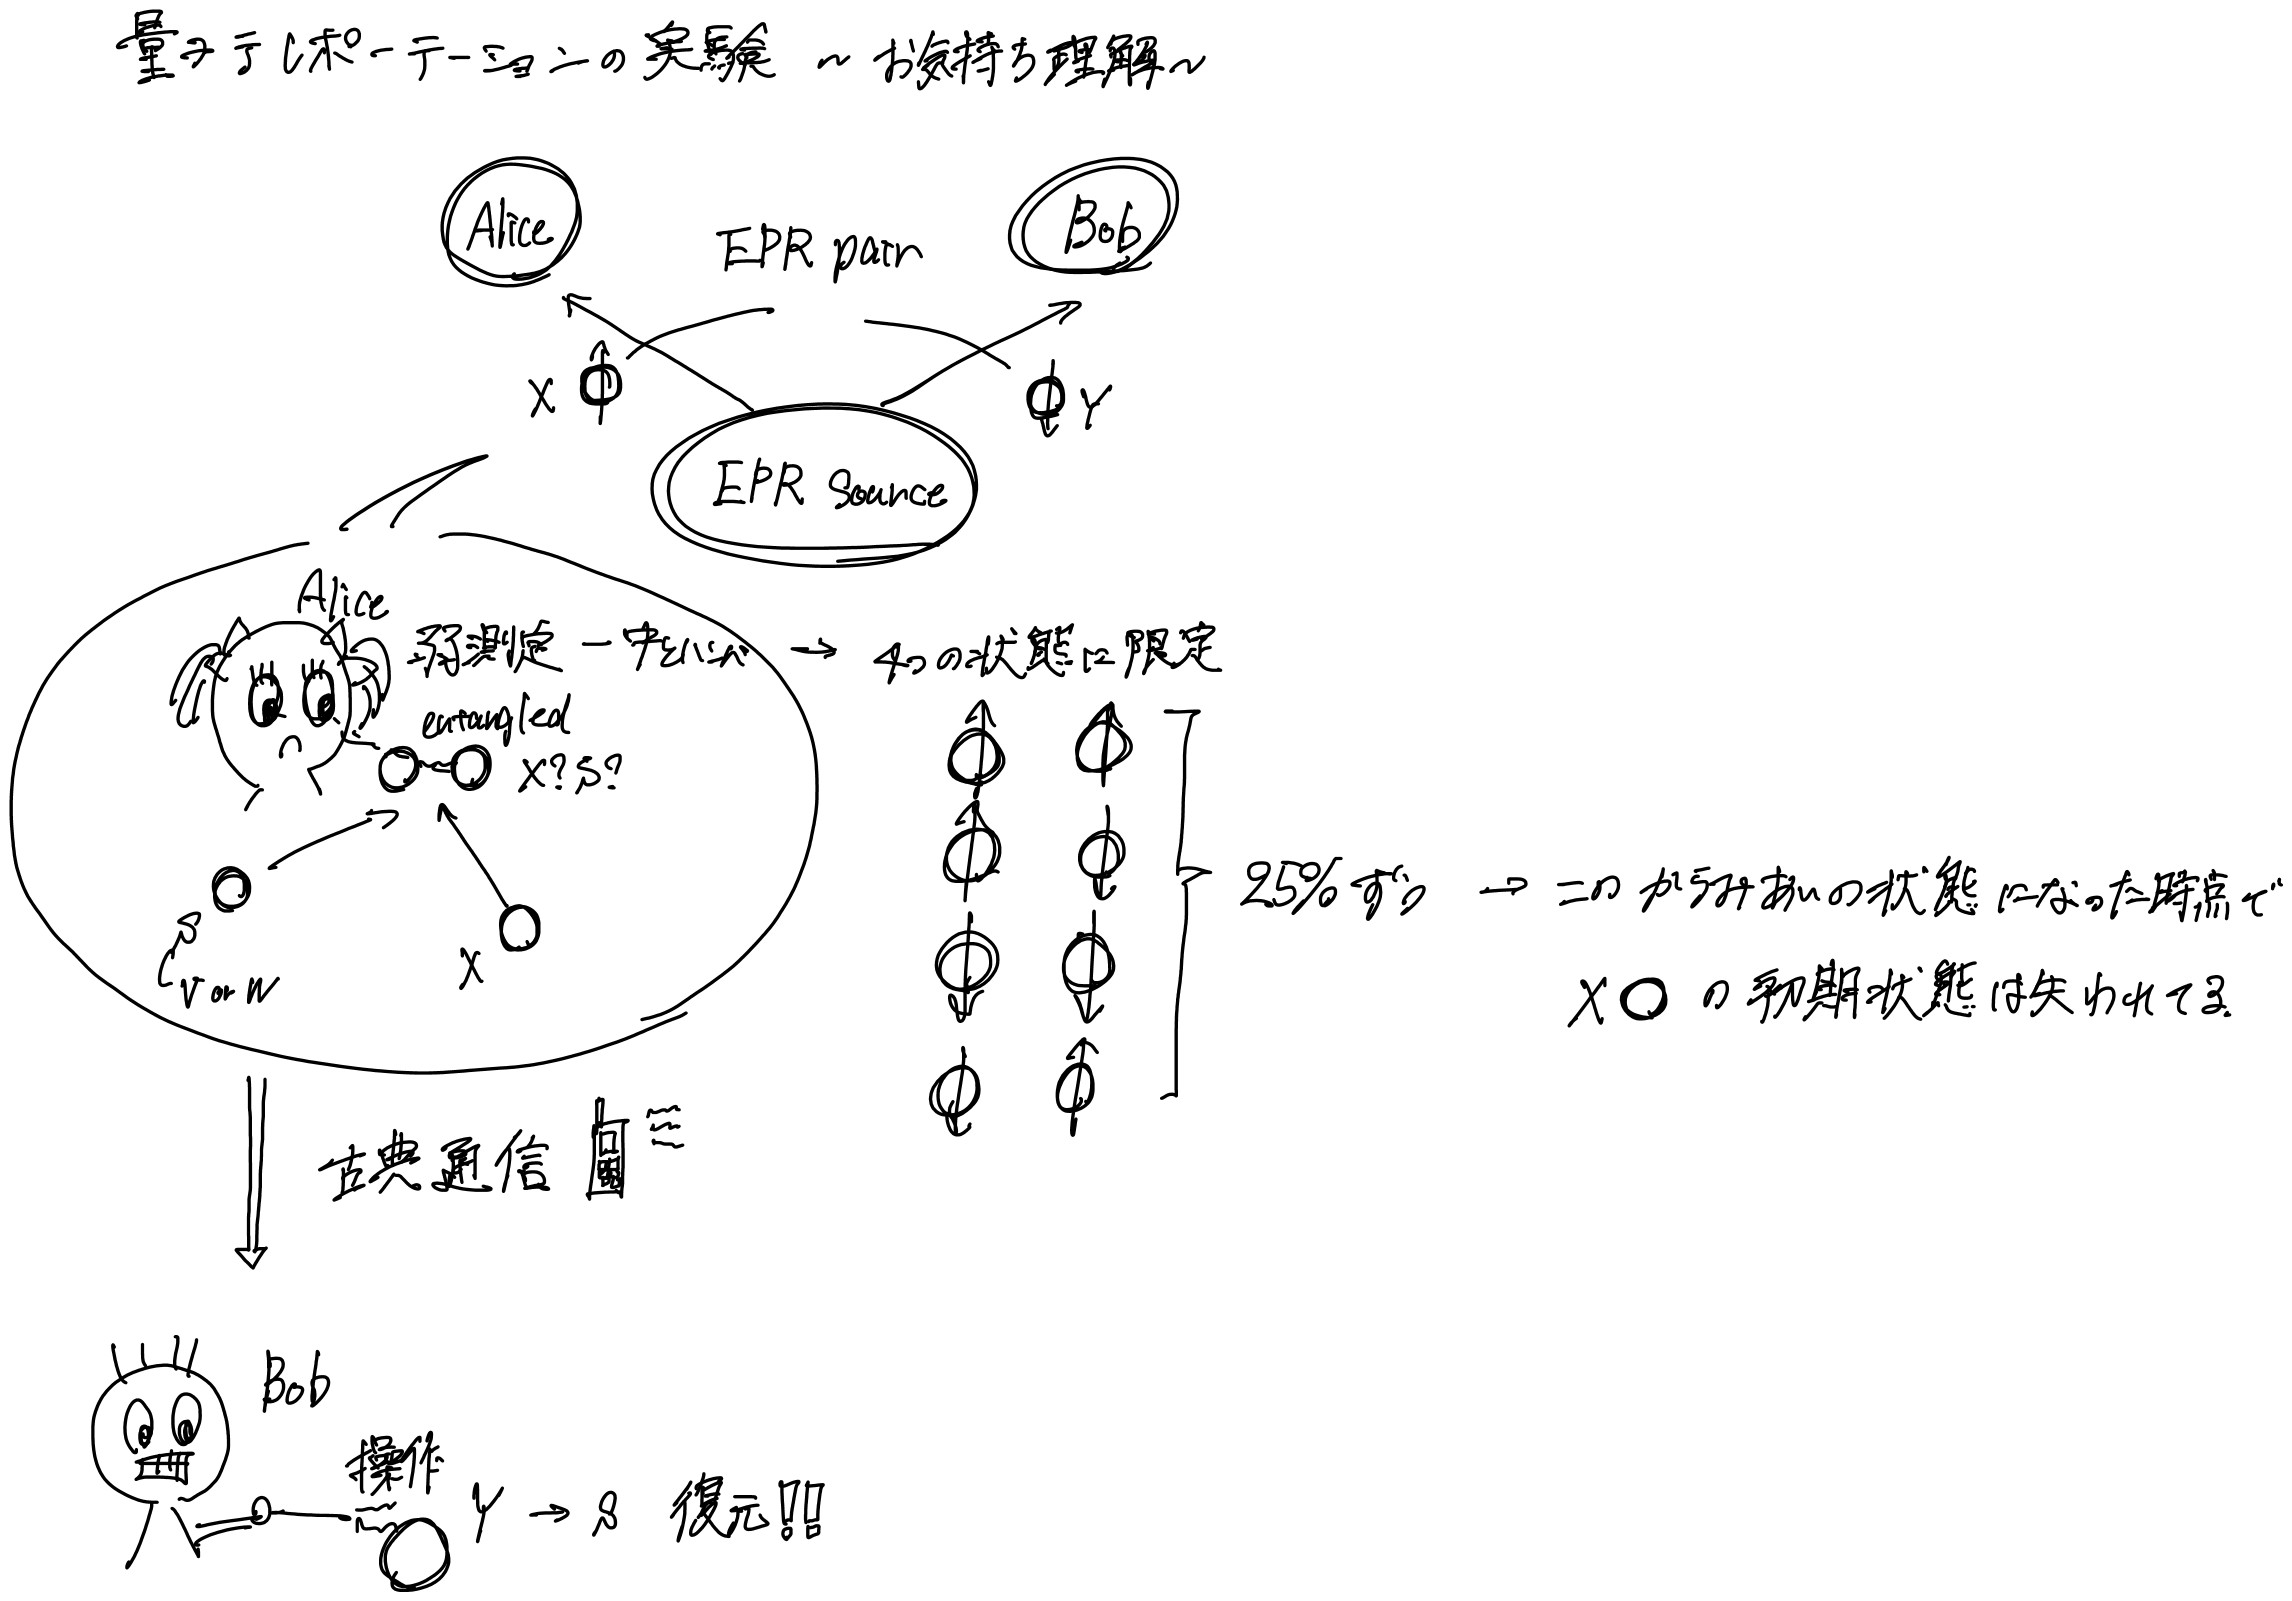 量子テレポーテーションの実験 ～お気持ち理解～
Alice
EPR pair
Bob
X
Y
EPR Source
Alice
→ 4つの状態に限定
entangled
X? S?
S
V or W
X
25%ずつ → このからみあいの状態になった時点で
X の初期状態は失われてる
古典通信
Bob
操作
Y → S 復元!!!